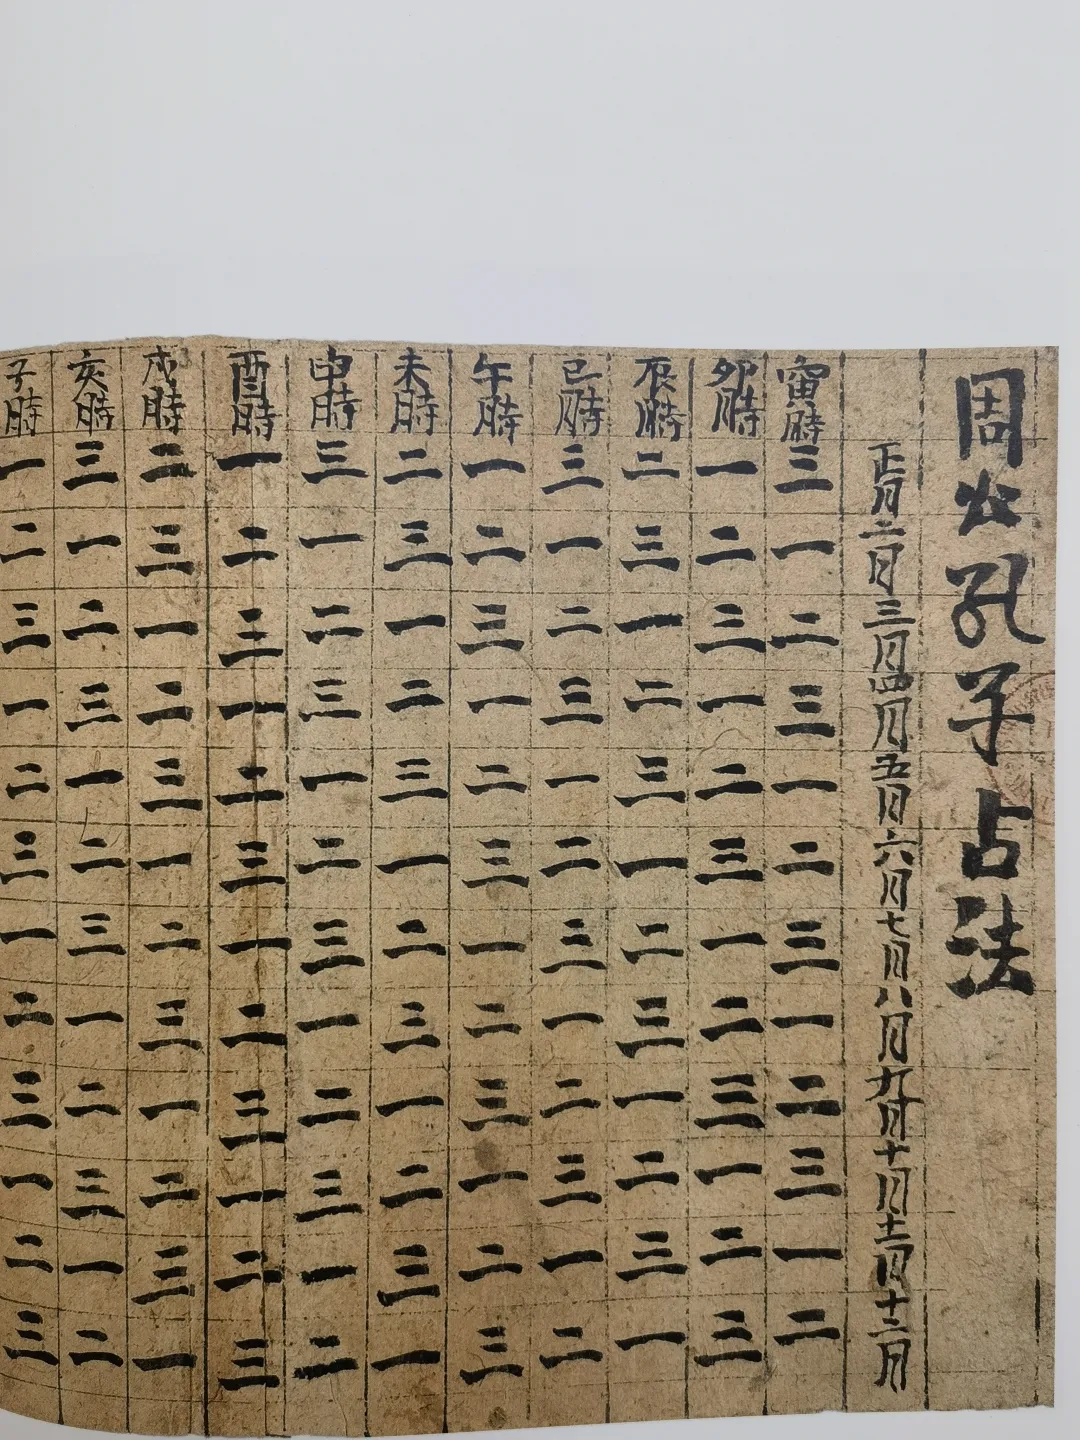 周公孔子占法
正月二月三月四月五月六月七月八月九月十月十一月十二月
寅時三一二三一二三一二三一二
卯時一二三一二三一二三一二三
辰時二三一二三一二三一二三一
巳時三一二三一二三一二三一二
午時一二三一二三一二三一二三
未時二三一二三一二三一二三一
申時三一二三一二三一二三一二
酉時一二三一二三一二三一二三
戌時二三一二三一二三一二三一
亥時三一二三一二三一二三一二
子時一二三一二三一二三一二三